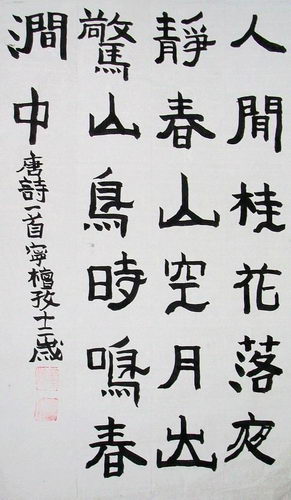 人閒桂花落夜
靜春山空月出
驚山鳥時鳴春
澗中 唐詩一首寧檀孜十二歲